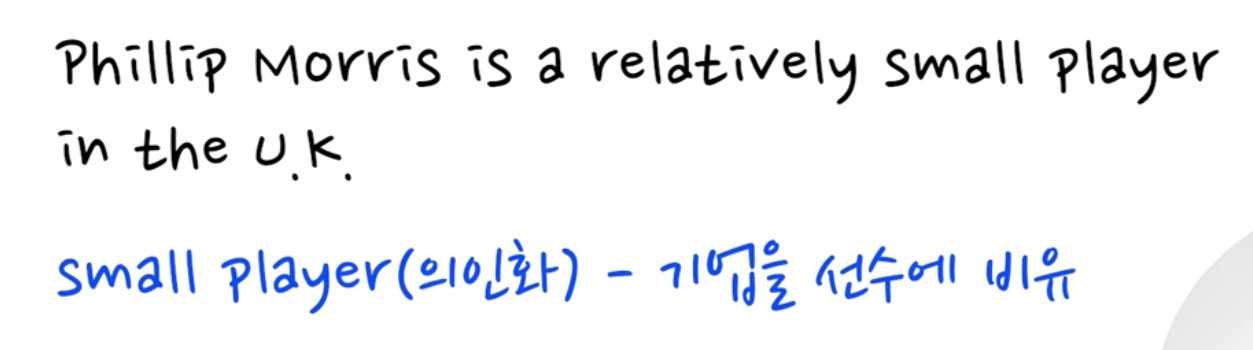 Phillip Morris is a relatively small player
in the U.K.
small player(의인화) - 기업을 선수에 비유